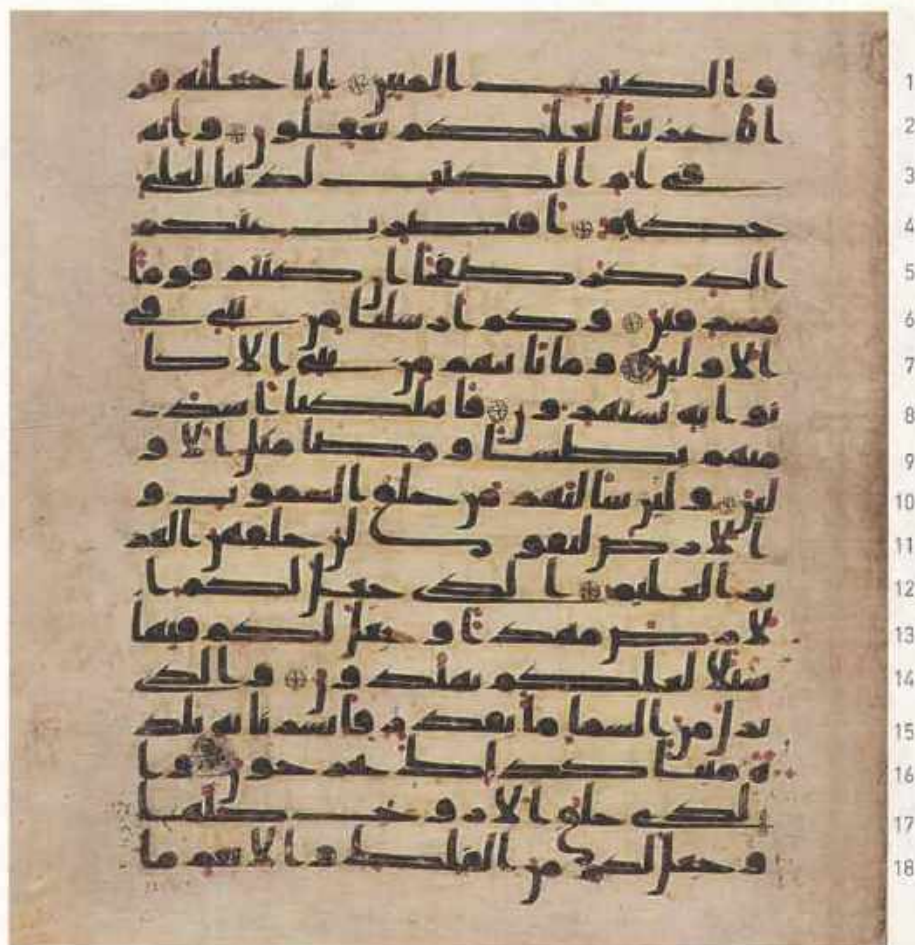 1 و الكتب المبين انا جعلنه قر
2 انا عربيا لعلكم تعقلون وانه
3 في ام الكتب لدينا لعلي
4 حكيم افنضرب عنكم
5 الذكر صفحا ان كنتم قوما
6 مسرفين وكم ارسلنا من نبي في
7 الاولين وما ياتيهم من نبي الا كا
8 نوا به يستهزون فاهلكنا اشد
9 منهم بطشا ومضى مثل الاو
10 لين ولين سالتهم من خلق السموت و
11 الارض ليقولن خلقهن العز
12 يز العليم الذي جعل لكم ا
13 لارض مهدا وجعل لكم فيها
14 سبلا لعلكم تهتدون والذي
15 نزل من السما ما بقدر فانشرنا به بلد
16 ة ميتا كذلك تخرجون وا
17 لذي خلق الازوج كلها
18 وجعل لكم من الفلك والانعم ما